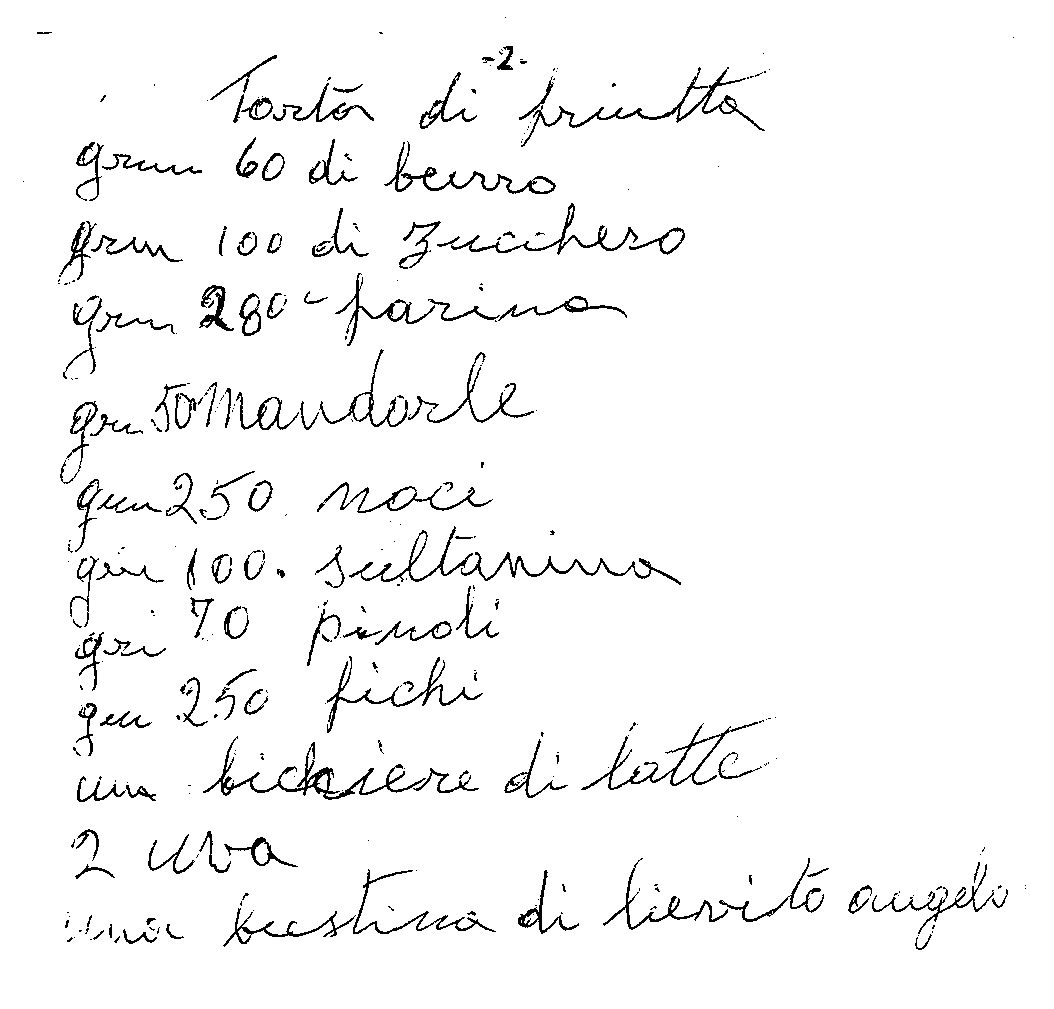 -2-
Torta di friutta
grm 60 di burro
grm 100 di Zucchero
grm 280 - farina
grm 50 Mandorle
grm 250 noci
grm 100. sultanina
gri 70 pinoli
grm 250 fichi
una bichiere di latte
2 uva
una bustina di lievito angelo